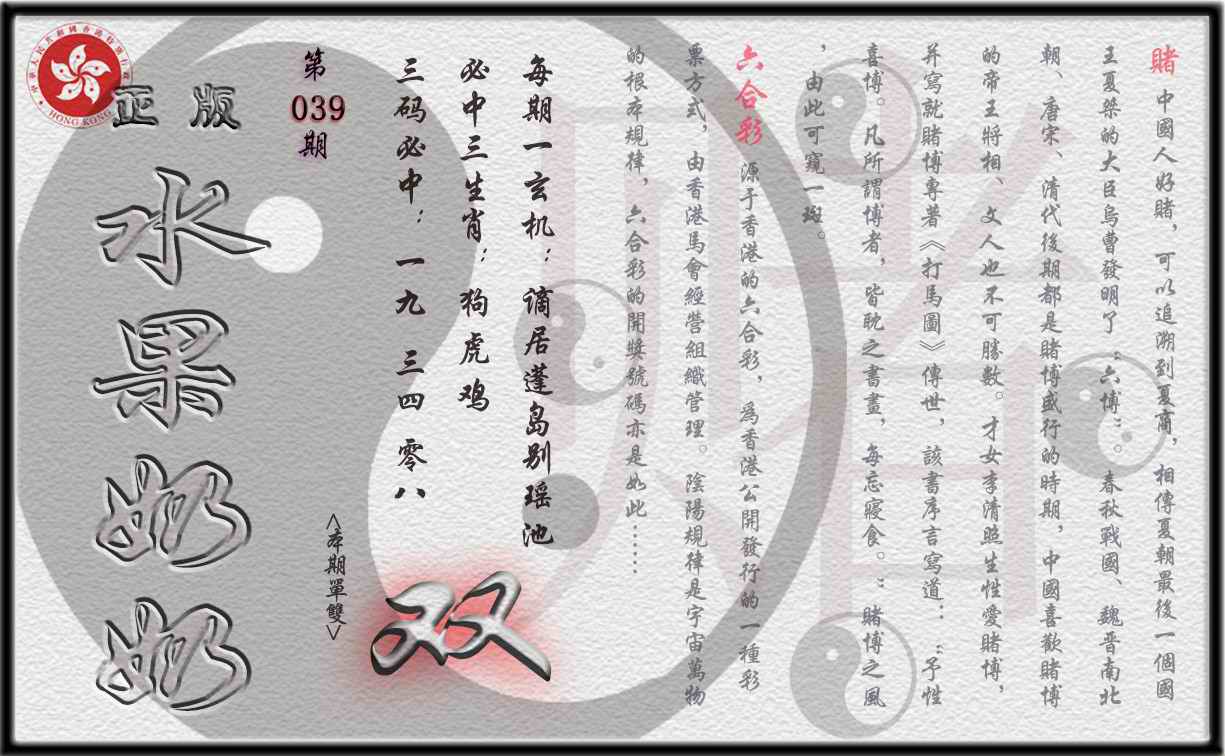 賭 中國人好賭，可以追溯到夏商，相傳夏朝最後一個國
王夏桀的大臣烏曹發明了“六博”。春秋戰國、魏晋南北
朝、唐宋、清代後期都是賭博盛行的時期，中國喜歡賭博
的帝王將相、文人也不可勝數。才女李清照生性愛賭博，
并寫就賭博專著《打馬圖》傳世，該書序言寫道：“予性
喜博。凡所謂博者，皆耽之書畫，每忘寢食。”賭博之風
，由此可窺一斑。
六合彩 源于香港的六合彩，爲香港公開發行的一種彩
票方式，由香港馬會經營組織管理。陰陽規律是宇宙萬物
的根本規律，六合彩的開獎號碼亦是如此……
每期一玄机：谪居蓬岛别瑶池
必中三生肖：狗虎鸡
三码必中：一九 三四 零八
双
<本期單雙>
第
039
期
正版
水果奶奶
中華人民共和國香港特別行政區
HONG KONG